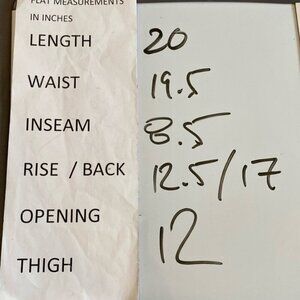 FLAT MEASUREMENTS
IN INCHES
LENGTH 20
WAIST 19.5
INSEAM 8.5
RISE / BACK 12.5/17
OPENING 12
THIGH